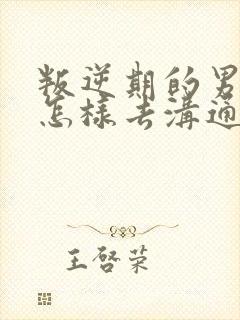 叛逆期的男
怎樣去溝通
王啓荣